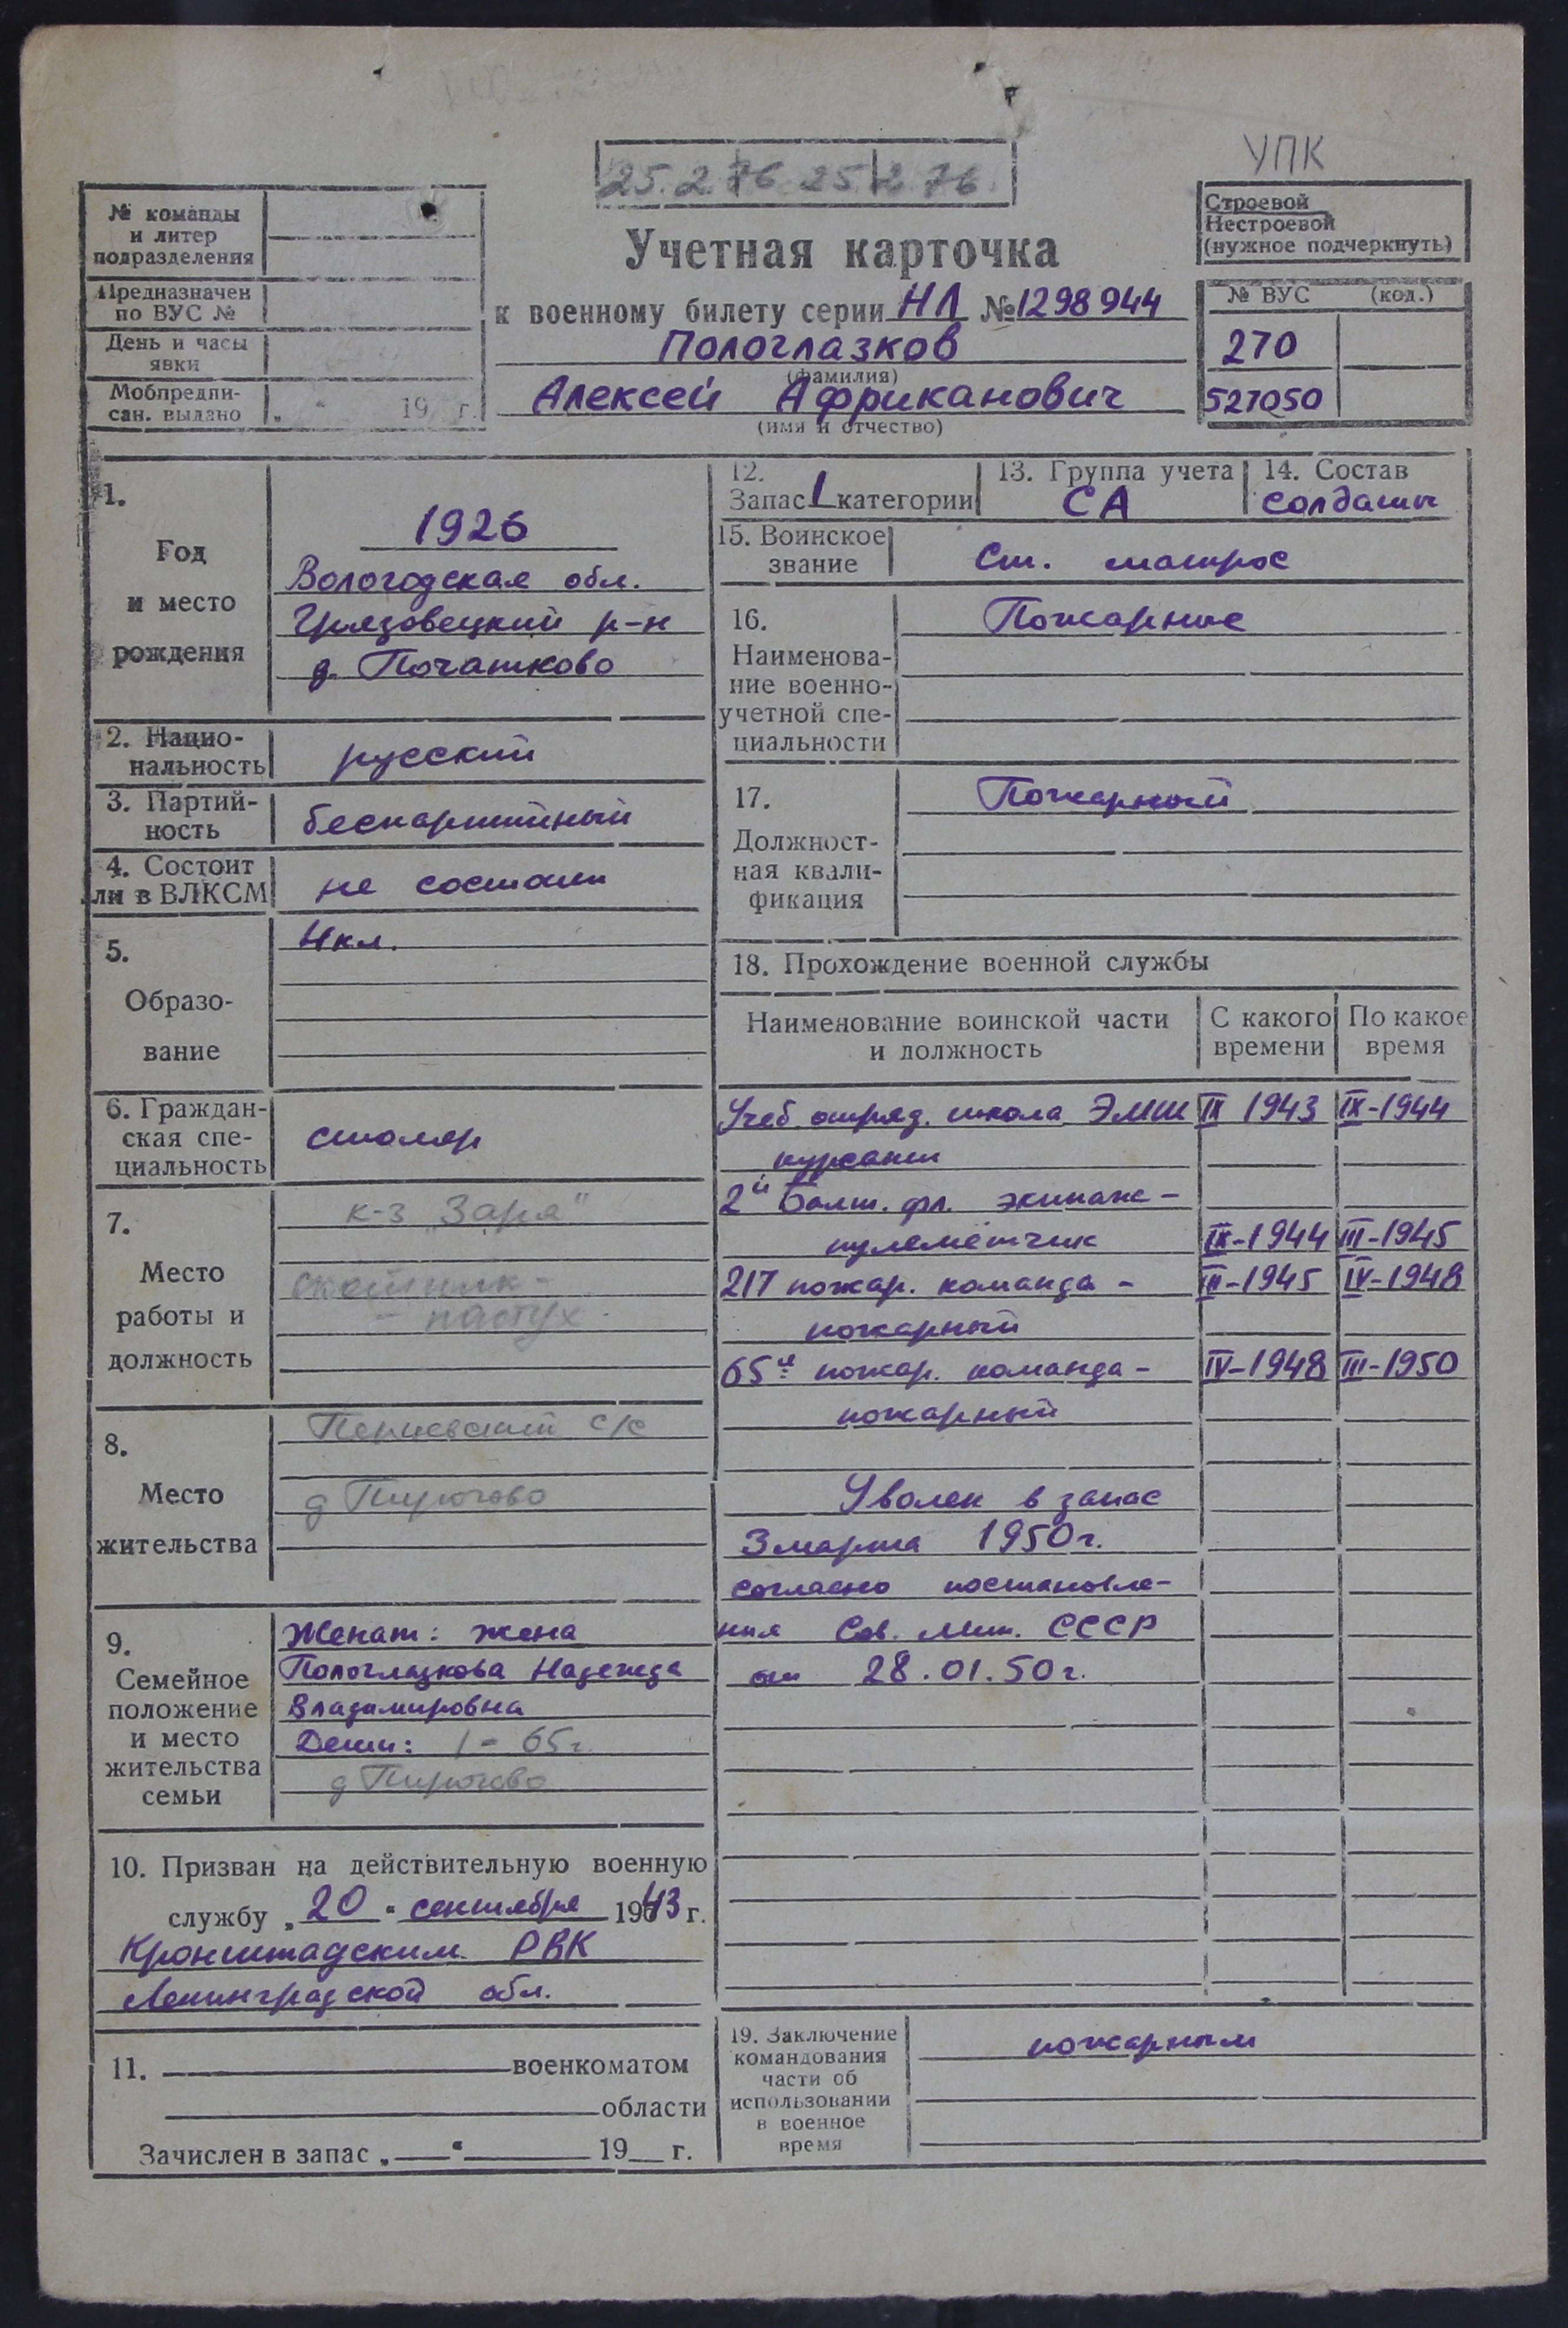 УПК
25.2.76 25.2.76.
№ команды
и литер
подразделения
Предназначен
по ВУС №
День и часы
явки
Мобпредпи-
сан. выдано „ " 19 г.
Строевой
Нестроевой
(нужное подчеркнуть)
Учетная карточка
к военному билету серии НЛ № 1298944
Пологлазков
(фамилия)
Алексей Африканович
(имя и отчество)
№ ВУС (код.)
270
527050
1.
Год
и место
рождения
1926
Вологодская обл.
Грязовецкий р-н
д. Початково
2. Нацио-
нальность русский
3. Партий-
ность беспартийный
4. Состоит
ли в ВЛКСМ не состоит
5.
Образо-
вание
4кл.
6. Граждан-
ская спе-
циальность
столяр
7.
Место
работы и
должность
к-з „Заря"
скотник -
- пастух
8.
Место
жительства
Перцевский с/с
д Пирогово
9.
Семейное
положение
и место
жительства
семьи
Женат: жена
Пологлазкова Надежда
Владимировна
Дети: 1 - 65г.
д Пирогово
10. Призван на действительную военную
службу „20" сентября 1943 г.
Кронштадским РВК
Ленинградской обл.
11. военкоматом
области
Зачислен в запас „ " 19 г.
12.
Запас 1 категории
13. Группа учета
СА
14. Состав
солдаты
15. Воинское
звание
Ст. матрос
16.
Наименова-
ние военно-
учетной спе-
циальности
Пожарные
17.
Должност-
ная квали-
фикация
Пожарный
18. Прохождение военной службы
Наименование воинской части
и должность
С какого
времени
По какое
время
Учеб. отряд. школа ЭМШ IX 1943 IX-1944
курсант
2й Балт. фл. экипаж -
пулемётчик IX-1944 III-1945
217 пожар. команда - III-1945 IV-1948
пожарный
65я пожар. команда - IV-1948 III-1950
пожарный
Уволен в запас
3 марта 1950г.
согласно постановле-
ния Сов. Мин. СССР
от 28.01.50г.
19. Заключение
командования
части об
использовании
в военное
время
пожарным